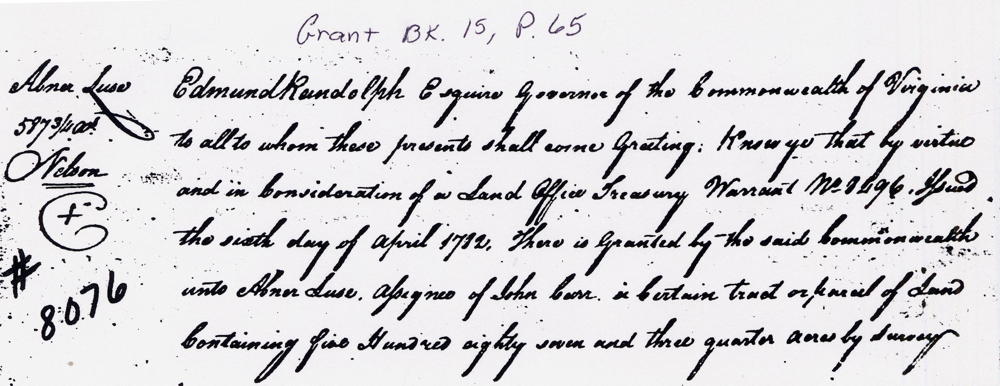 Grant BK. 15, P. 65
Abner Luse
587 3/4 acs
Nelson
#
8076
Edmund Randolph Esquire Governor of the Commonwealth of Virginia
to all to whom these presents shall come Greeting: Know ye that by virtue
and in Consideration of a Land Office Treasury Warrant No. 8496. Issued
the sixth day of April 1782, There is Granted by the said Commonwealth
unto Abner Luse, Assignee of John Carr. a Certain tract or parcel of Land
Containing five Hundred eighty seven and three quarter acres by survey